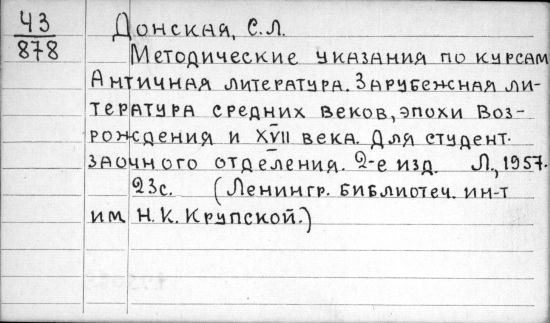 43
878
Донская, С.Л.
Методические указания по курсам
Античная литература. Зарубежная ли-
тература средних веков, эпохи Воз-
рождения и XVII века. Для студент.
заочного отделения. 2-е изд. Л., 1957.
23с. (Ленингр. библиотеч. ин-т
им. Н.К. Крупской.)